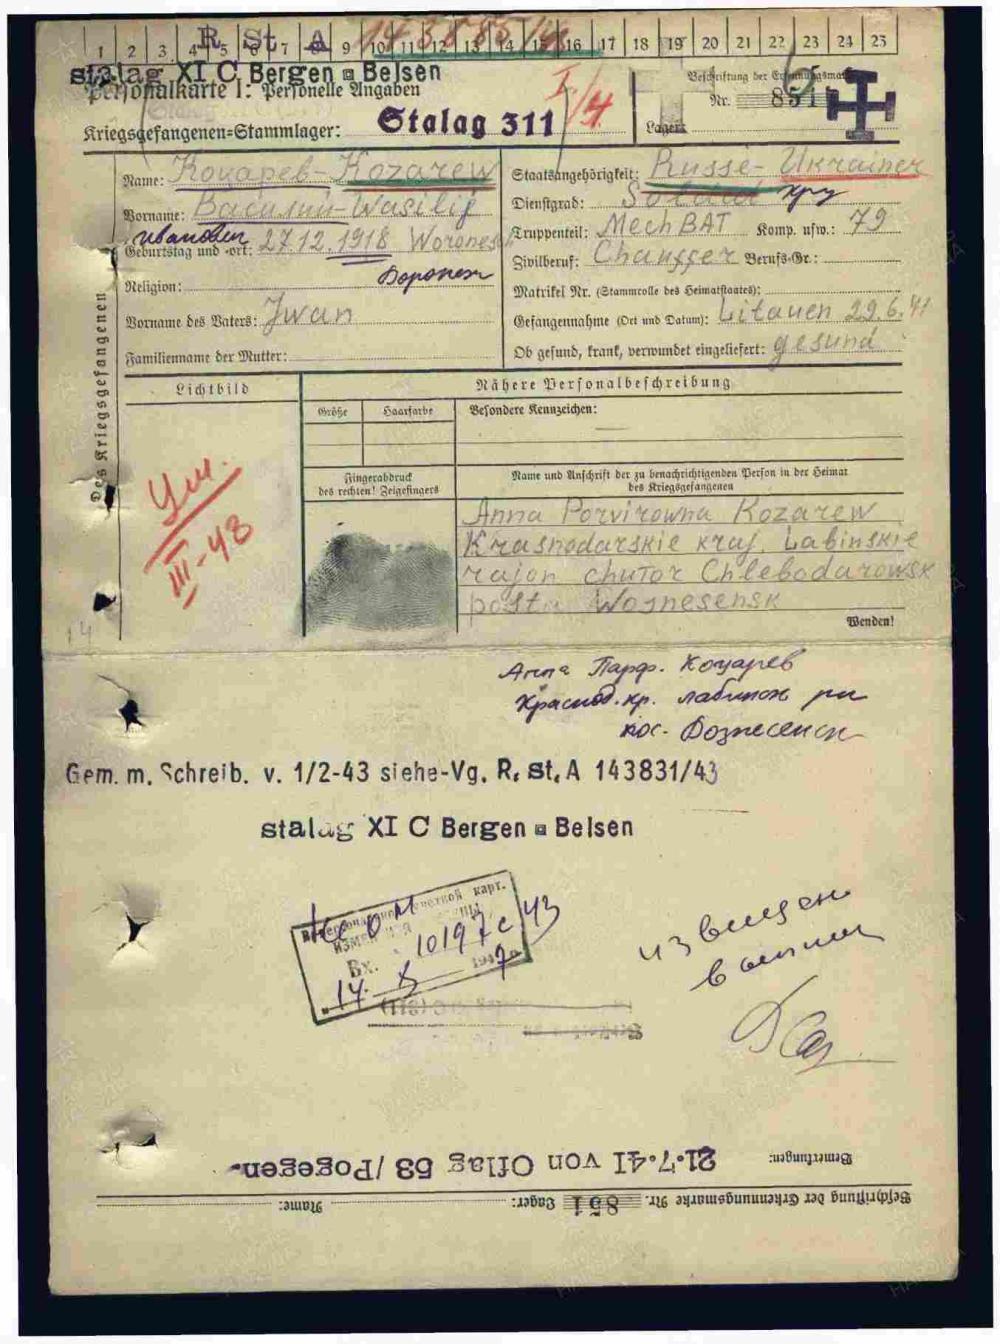 1 2 3 4 5 6 7 8 9 10 11 12 13 14 15 16 17 18 19 20 21 22 23 24 25
R St A
stalag XI C Bergen Belsen
Personalkarte I: Personelle Angaben
I/4
Beschriftung der Erkennungsmarke
Nr. 851
Kriegsgefangenen=Stammlager: Stalag 311
Lager:
Des Kriegsgefangenen
Name: Коцарев-Kozarew
Vorname: Василий-Wasilij
Иванович
Geburtstag und -ort: 27.12.1918 Woronesch
Воронеж
Religion:
Vorname des Vaters: Jwan
Familienname der Mutter:
Staatsangehörigkeit: Russe-Ukrainer
Dienstgrad: Soldat
Truppenteil: Mech BAT Komp. usw.: 79
Zivilberuf: Chauffer Berufs-Gr.:
Matrikel Nr. (Stammrolle des Heimatstaates):
Gefangennahme (Ort und Datum): Litauen 29.6.41
Ob gesund, krank, verwundet eingeliefert: gesund
Lichtbild
Nähere Personalbeschreibung
Größe Haarfarbe
Besondere Kennzeichen:
Fingerabdruck
des rechten! Zeigefingers
Name und Anschrift der zu benachrichtigenden Person in der Heimat
des Kriegsgefangenen
Ум.
III-43
Anna Porvirowna Kozarew
Krasnodarskie kraj. Labinskie
rajon chutor Chlebodarowsk
posta Wosnesensk
Wenden!
14
Анна Парф. Коцарев
Краснод. кр. Лабинск рн
пос. Вознесенск
Gem. m. Schreib. v. 1/2-43 siehe-Vg. R. St. A 143831/43
stalag XI C Bergen Belsen
карт.
Вх. 10197с 43
14. X 194
извещен
выписан
Bemerkungen: 21.7.41 von Oflag 53/Pogegen.
Beschriftung der Erkennungsmarke Nr. 851 Lager: Name: